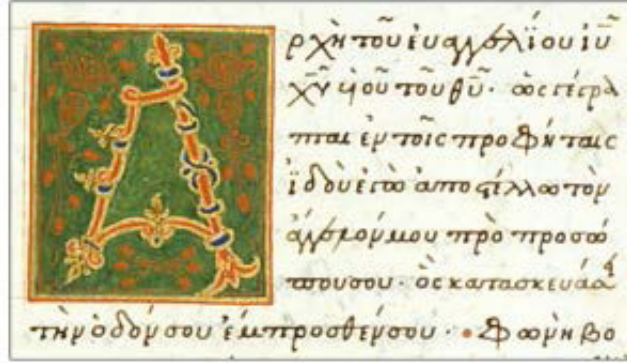 Ἀρχὴ τοῦ εὐαγγελίου ἰυ
χυ υἱοῦ τοῦ θυ· ὡς γέγρα
πται ἐν τοῖς προφήταις
ἰδοὺ ἐγὼ ἀποστέλλω τὸν
ἄγγελόν μου πρὸ προσώ
που σου· ὃς κατασκευάσ
τὴν ὁδόν σου ἔμπροσθέν σου· φωνὴ βο